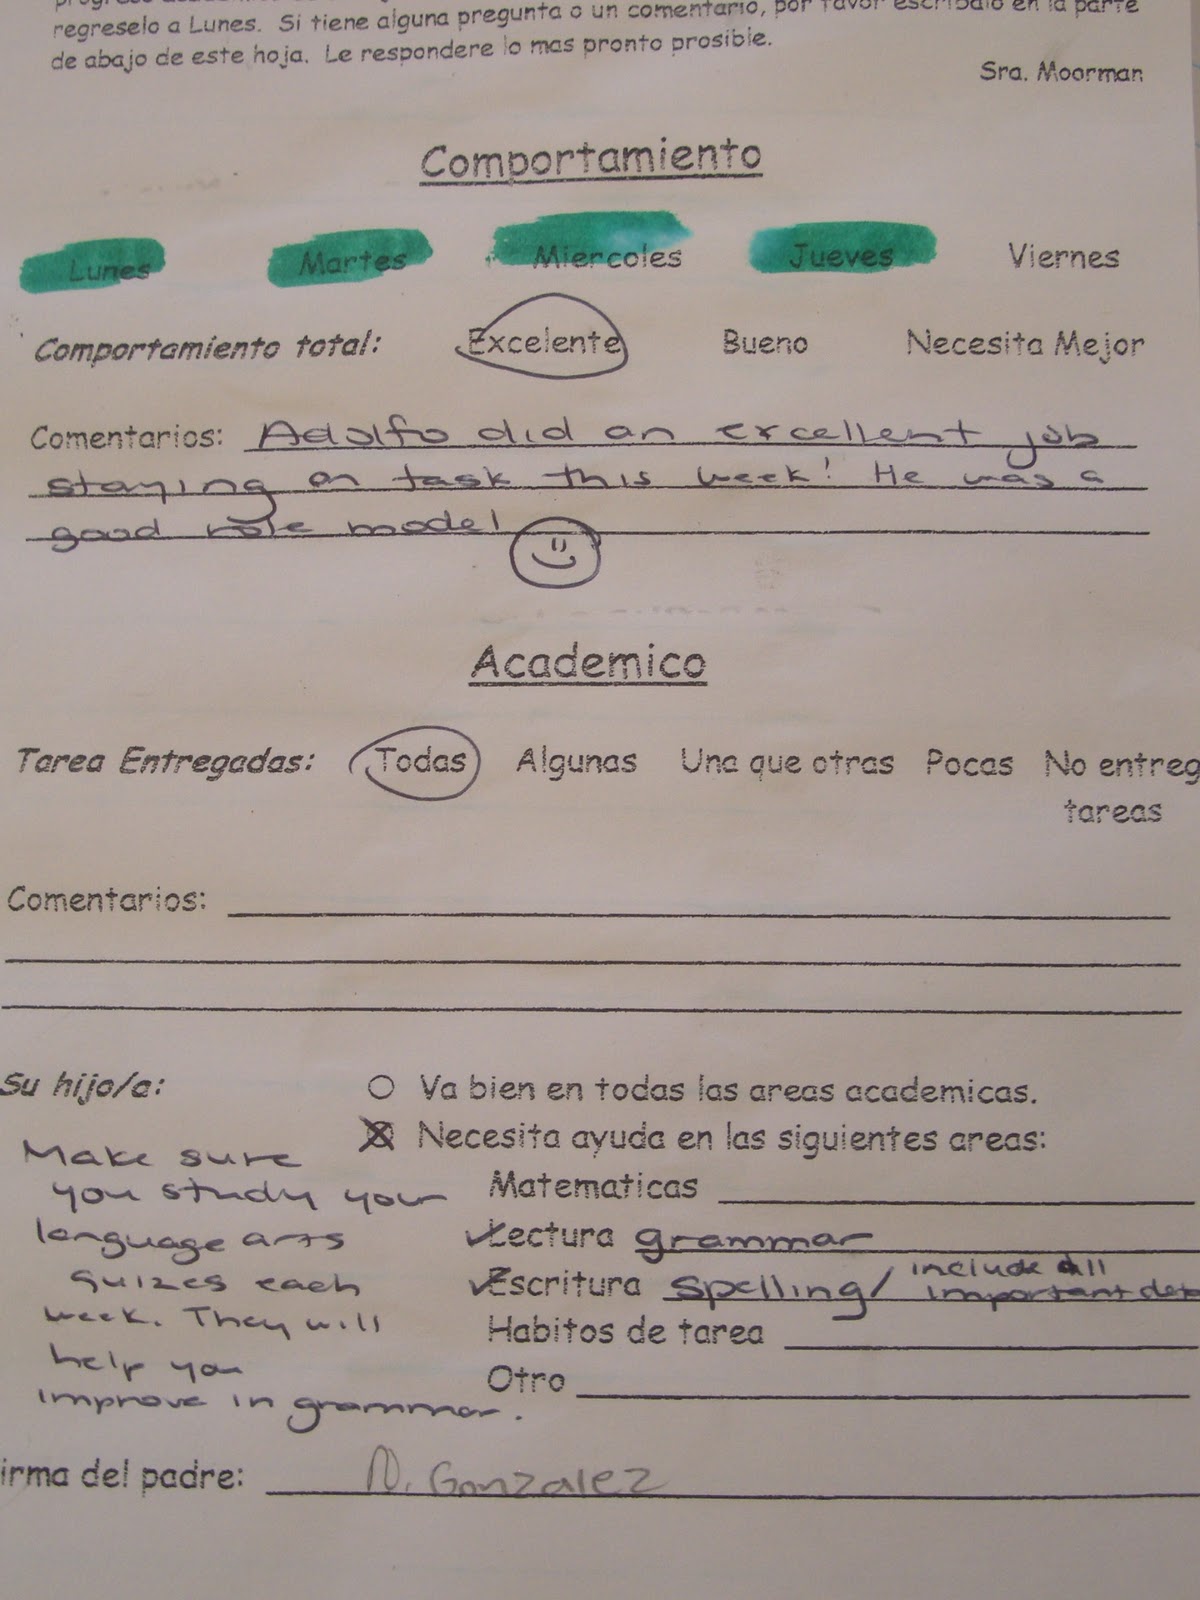 progreso academico
regreselo a Lunes. Si tiene alguna pregunta o un comentario, por favor escribalo en la parte
de abajo de este hoja. Le respondere lo mas pronto prosible.
Sra. Moorman
Comportamiento
Lunes Martes Miercoles Jueves Viernes
Comportamiento total: Excelente Bueno Necesita Mejor
Comentarios: Adolfo did an excellent job
staying on task this week! He was a
good role model
Academico
Tarea Entregadas: Todas Algunas Una que otras Pocas No entreg
tareas
Comentarios:
Su hijo/a: Va bien en todas las areas academicas.
Necesita ayuda en las siguientes areas:
Make sure
you study your
language arts
quizes each
week. They will
help you
improve in grammar.
Matematicas
Lectura grammar
Escritura spelling/ include all
important det
Habitos de tarea
Otro
irma del padre: N. Gonzalez